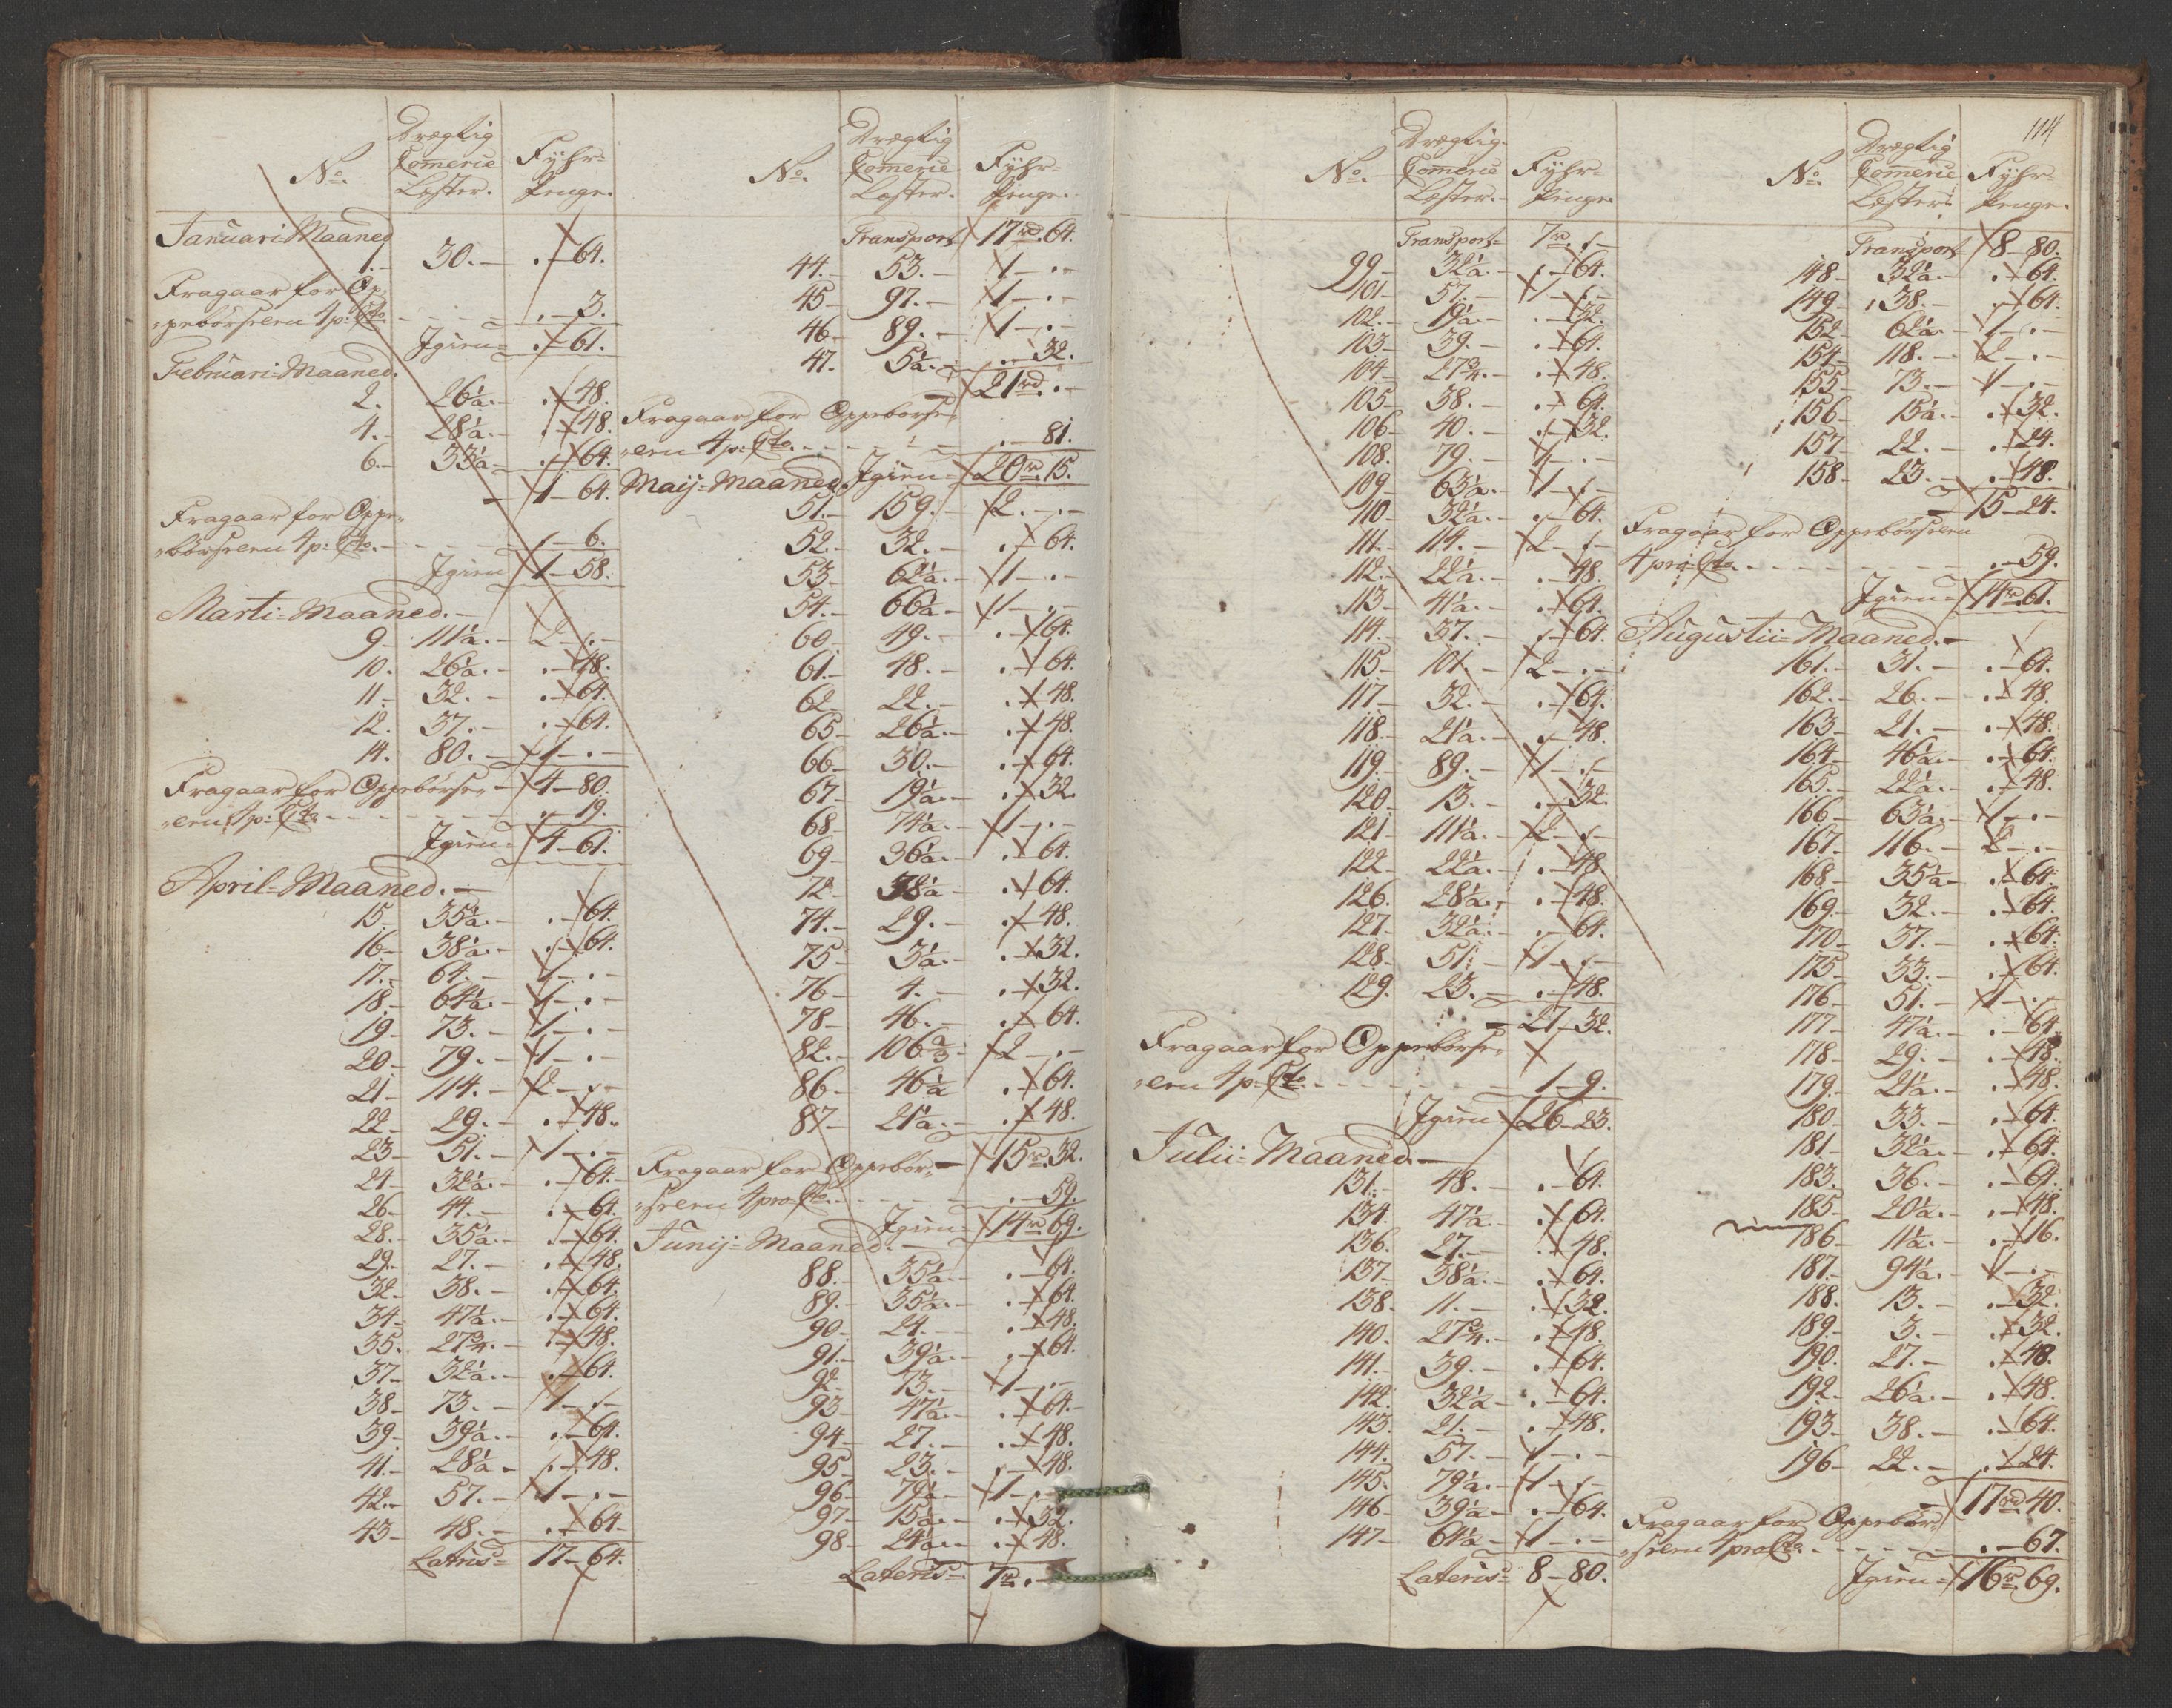 No.
Drægtig Comerce Læster.
Fyhr-Penge.
Januari Maaned
1.- 30.- .-64.
Fragaar for Op-
-pebörselen 4 p: Cto. - - - .-3.
Igien= .-61.
Februari-Maaned.
2. 26½.- .-48.
4.- 28½.- .-48.
6.- 33½- .-64.
1-64.
Fragaar for Oppe-
-börselen 4 p: Cto. - - - .-6.
Igien 1-58.
Marti-Maaned.-
9- 111½.- 2-.-
10. 26½.- .-48.
11.- 32.- .-64.
12. 37.- .-64.
14. 80.- 1-.-
Fragaar for Oppebörse-- 4-80.
-len 4 p: Cto. - - - .-19.
Igien= 4-61.
April-Maaned.-
15.- 35½.- .-64.
16- 38½.- .-64.
17.- 64.- 1-.-
18.- 64½.- 1-.-
19- 73.- 1-.-
20- 79.- 1-.-
21- 114.- 2-.-
22- 29.- .-48.
23- 51.- 1-.-
24- 32½.- .-64.
26- 44.- .-64.
28.- 35½.- .-64.
29- 27.- .-48.
32- 38.- .-64.
34- 47½.- .-64.
35. 27¾.- .-48.
37- 32½.- .-64.
38- 73.- 1-.-
39- 39½.- .-64.
41.- 28½- .-48.
42.- 57.- 1-.-
43- 48.- .-64-
Laterus= 17-64.
No.
Drægtig Comerce Læster.
Fyhr-Penge.
Transport 17rd.64.
44.- 53.- 1-.-
45- 97.- 1-.-
46- 89.- 1-.-
47. 5½.- .-32.
21rd.-
Fragaar for Oppebörse-
-len 4 p: Cto. - - - .-81.
Igien= 20rd.15.
Maij-Maaned.
51.- 159.- 2.-.-
52.- 32.- .-64.
53- 62½.- 1-.-
54.- 66½- 1-.-
60 49.- .-64.
61.- 48.- .-64.
62- 22.- .-48.
65- 26½.- .-48.
66- 30.- .-64.
67- 19½.- .-32.
68- 74½.- 1-.-
69- 36½.- .-64.
72- 38½- .-64.
74.- 29.- .-48.
75- 3½.- .-32.
76- 4.- .-32.
78- 46.- .-64.
82.- 106⅔- 2-.-
86- 46½ .-64.
87- 21½.- .-48.
Fragaar for Oppebör-- 15rd.32.
-selen 4 pro Cto. - - - .-59.
Igien= 14rd.69.
Junij-Maaned.-
88.- 35½.- .-64.
89.- 35½.- .-64.
90- 24.- .-48.
91.- 39½.- .-64.
92- 73.- 1-.-
93- 47½.- .-64.-
94- 27.- .-48.
95- 23.- .-48.
96- 79½- 1-.-
97- 15½.- .-32.
98- 24½.- .-48.
Laterus= 7rd.-
114
No.
Drægtig. Comerce Læster.-
Fyhr-Penge
Transport= 7rd.-
99- 32½.- .-64.
101- 57.- 1-.-
102.- 19½.- .-32.
103- 39.- .-64.
104- 27¾.- .-48.
105- 38.- .-64.
106- 40.- .-32.
108. 79.- 1-.-
109- 63½.- 1-.-
110- 32½.- .-64.
111.- 114.- 2-.-
112.- 22½.- .-48.
113- 41½.- .-64.
114.- 37.- .-64.
115- 101.- 2-.-
117- 32.- .-64.
118.- 21½.- .-48.
119.- 89.- 1-.-
120- 13.- .-32.
121- 111½.- 2-.-
122- 22½.- .-48.
126. 28½.- .-48.
127- 32½.- .-64.
128- 51.- 1-.-
129. 23.- .-48.
27-32.
Fragaar for Oppebörse-
-len 4 p: Cto. - - - 1-9.
Igien 26-23.
Julii-Maaned.-
131.- 48.- .-64.
134. 47½.- .-64.
136. 27.- .-48.
137- 38½.- .-64.
138. 11.- .-32.
140. 27¾.- .-48.
141.- 39.- .-64.
142. 32½- .-64.
143. 21.- .-48.
144. 57.- 1-.-
145. 79½.- 1-.-
146 39½- .-64.
147- 64½- 1-.-
Laterus= 8-80.
No.
Drægtig Comerce Læster.
Fyhr-Penge.
Transport= 8-80.
148- 32½.- .-64.
149- 38.- .-64.
152- 62½- 1-.-
154- 118.- 2-.-
155- 73.- 1-.-
156- 15½.- .-32.
157- 22.- .-24.
158- 23.- .-48.
15-24.
Fragaar for Oppebörselen
4 pro Cto. - - - .-59.
Igien= 14rd.61.
Augustii-Maaned.-
161.- 31.- .-64.
162.- 26.- .-48.
163- 21.- .-48.
164- 46½.- .-64.
165.- 22½.- .-48.
166- 63½.- 1-.-
167- 116.- 2-.-
168- 35½.- .-64.
169.- 32.- .-64.
170- 37.- .-64.
175- 33.- .-64.
176- 51.- 1-.-
177- 47½.- .-64.
178- 29.- .-48.
179.- 21½.- .-48.
180- 33.- .-64.
181- 32½.- .-64.
183. 36.- .-64.
185- 20½.- .-48.
186- 11½.- .-16.
187.- 94½.- 1-.-
188. 13.- .-32.
189.- 3.- .-32.
190. 27.- .-48.
192. 26½.- .-48.
193- 38.- .-64.
196- 22.- .-24.
17rd.40.
Fragaar for Oppebör-
-selen 4 pro Cto. - - - .-67.
Igien= 16rd.69.